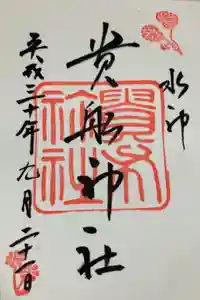 水神
貴船神社
平成三十年九月二十一日
貴船神社